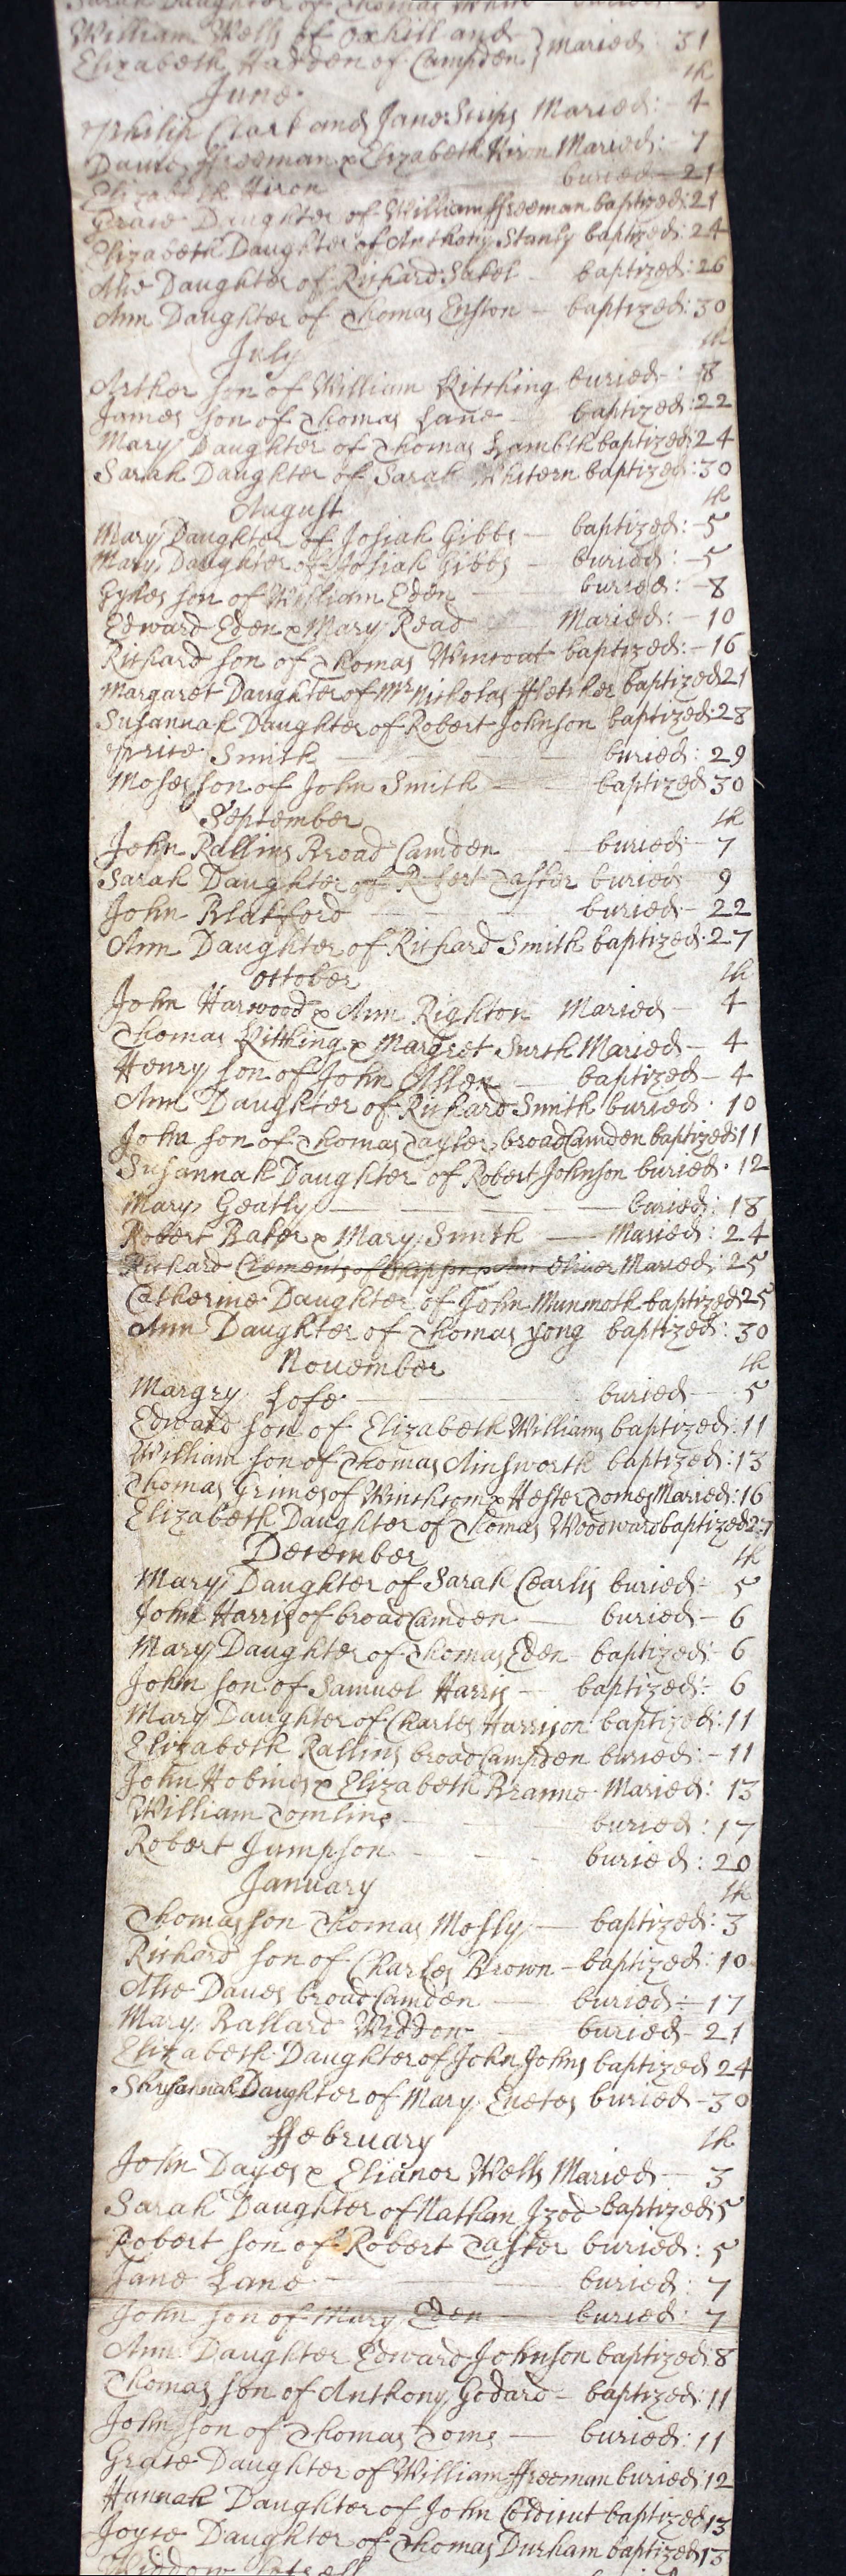 Sarah Daughter of Thomas White buried
William Wells of Oxhill and
Elizabeth Hadden of Campden } Maried: 31
June th
Philip Clark and Jane Maried: 4
David ffreeman x Elizabeth Hiron Maried: 7
Elizabeth Hiron buried 21
Grace Daughter of William ffreeman baptized: 21
Elizabeth Daughter of Anthony Stanly baptized: 24
Alic Daughter of Richard baptized: 26
Ann Daughter of Thomas Enston baptized: 30
July th
Arthor son of William Kitching buried: 8
James son of Thomas Lane baptized: 22
Mary Daughter of Thomas Lambth baptized: 24
Sarah Daughter of Sarah Whitern baptized: 30
August th
Mary Daughter of Josiah Gibbs baptized: 5
Mary Daughter of Josiah Gibbs buried: 5
Gyles son of William Eden buried: 8
Edward Eden x Mary Read Maried: 10
Richard son of Thomas Wincout baptized: 16
Margaret Daughter of Mr Nicholas ffletcher baptized 21
Susannah Daughter of Robert Johnson baptized: 28
Smith buried: 29
Moses son of John Smith baptized 30
September th
John Rallins Broad Camden buried 7
Sarah Daughter of Robert Taster buried 9
John Blakford buried 22
Ann Daughter of Richard Smith baptized: 27
October th
John Harwood x Ann Righton Maried 4
Thomas Kitching x Margret Surch Maried 4
Henry son of John Allen baptized 4
Ann Daughter of Richard Smith buried 10
John son of Thomas Tayler broad Camden baptized 11
Susannah Daughter of Robert Johnson buried 12
Mary Geatly buried: 18
Robert Baker x Mary Smith Maried: 24
Richard Clements of Oliver Maried: 25
Catherine Daughter of John Munmoth baptized 25
Ann Daughter of Thomas yong baptized: 30
November th
Margry Lofe buried 5
Edward son of Elizabeth Williams baptized: 11
William son of Thomas Ainsworth baptized: 13
Thomas Grunes of Winchcom x Hester Tomes Maried: 16
Elizabeth Daughter of Thomas Woodward baptized 27
December th
Mary Daughter of Sarah Cearlis buried 5
John Harris of broad Camden buried 6
Mary Daughter of Thomas Eden baptized: 6
John son of Samuel Harris baptized: 6
Mary Daughter of Charles Harrison baptized: 11
Elizabeth Rallins broad Campden buried: 11
John Hobines x Elizabeth Branne Maried: 13
William Tomlins buried: 17
Robert Jumpson buried: 20
January th
Thomas son Thomas Mosly baptized: 3
Richard son of Charles Brown baptized: 10
Alic Daves broad Camden buried: 17
Mary Ballard Widdow buried 21
Elizabeth Daughter of John Johns baptized 24
Shusannah Daughter of Mary Euetes buried 30
ffebruary th
John Dayes x Elianor Wells Maried 3
Sarah Daughter of Nathan Izod baptized: 5
Robert son of Robert Taster buried: 5
Jane Lane buried: 7
John son of Mary Eden buried: 7
Ann Daughter Edward Johnson baptized: 8
Thomas son of Anthony Godard baptized: 11
John son of Thomas Toms buried: 11
Grace Daughter of William ffreeman buried: 12
Hannah Daughter of John baptized 13
Joyce Daughter of Thomas Durham baptized 13
Widdow